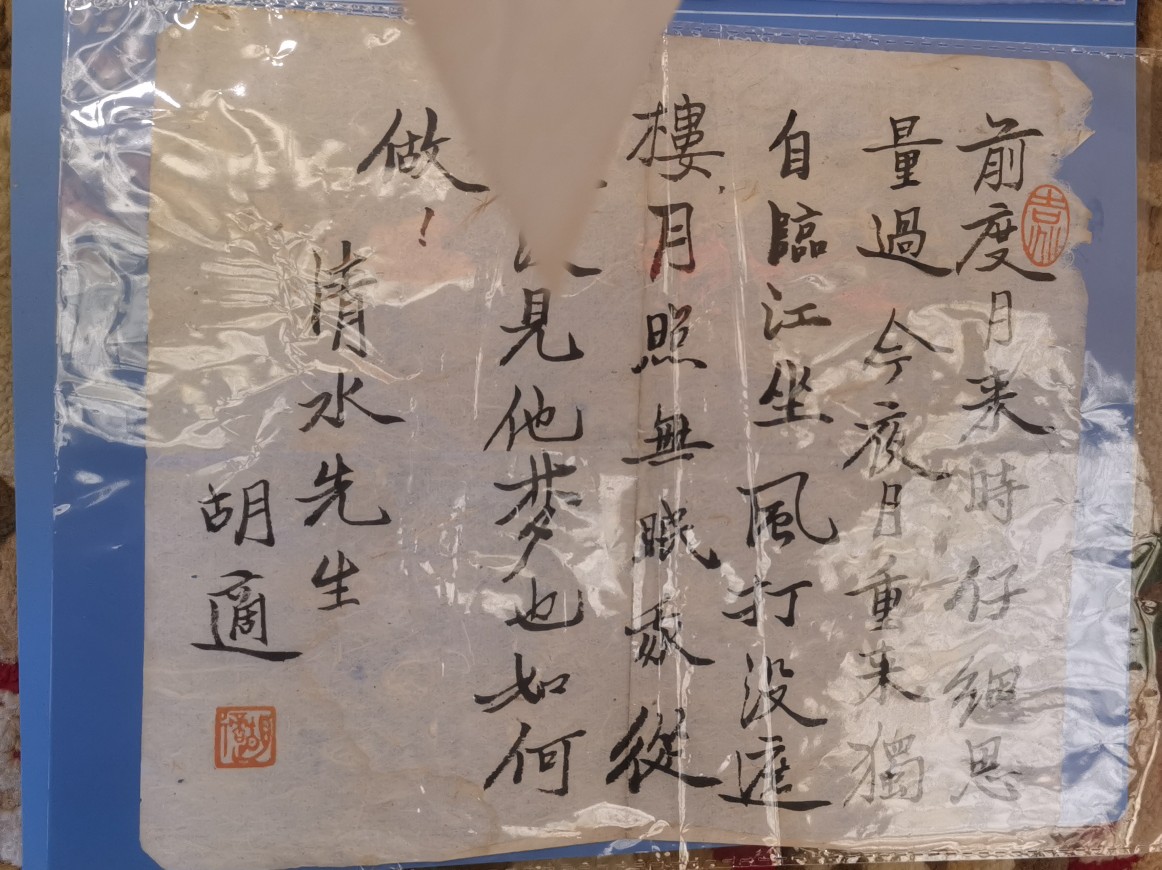 前度月来時仔細思
量過今夜月重来獨
自臨江坐風打没遮
樓月照無眠我從
見他夢也如何
做！
清水先生
胡適